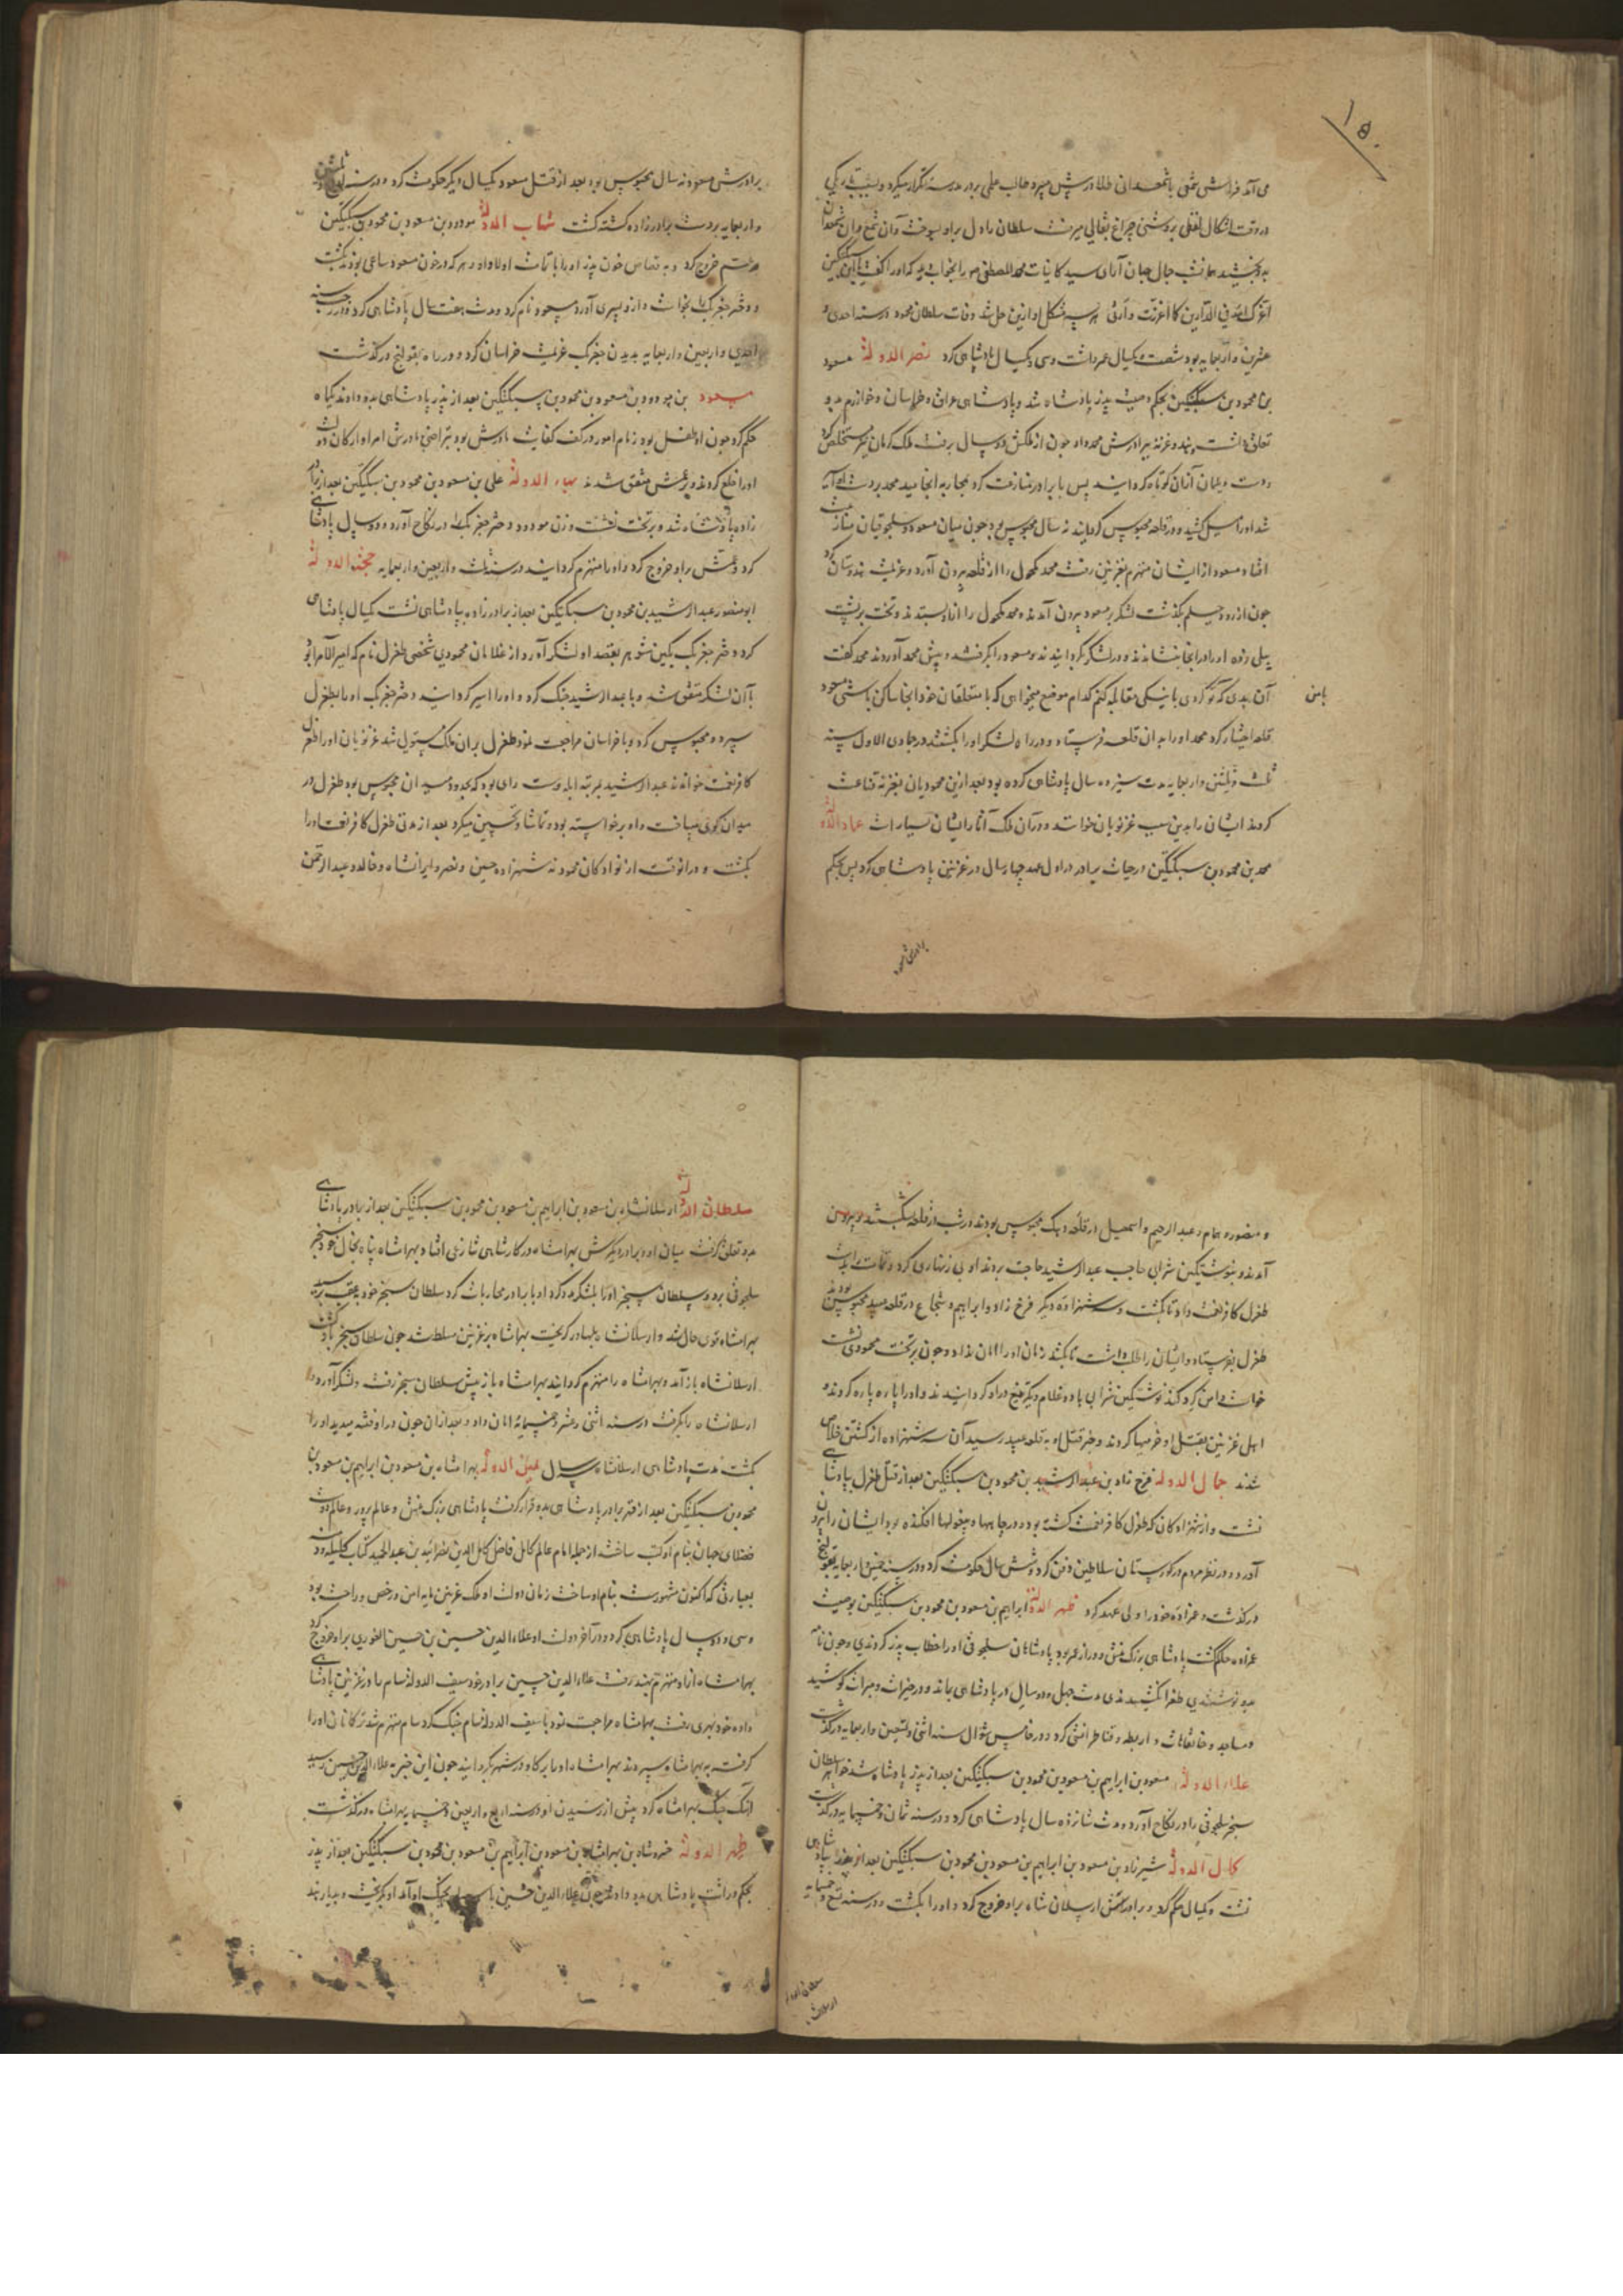 ۱۵۰
می‌آمد فراشی شمعی با شمعدانی طلا در پیش میبرد طالب علمی بر در مدرسه تکرار میکرد و بسبب تاریکی
در وقت اشکال لفظی بروشنی چراغ بقالی میرفت سلطان را دل برو بسوخت آن شمع و آن شمعدان
بدو بخشید همانشب جمال جهان آرای سید کاینات محمد المصطفی را بخواب دید که او را گفت یا ابن سبکتکین
اعزک الله فی الدارین کما اعززت وارثی هر سه مشکل او ازین حل شد وفات سلطان محمود در سنه احدی و
عشرین و اربعمایه بود شصت و یکسال عمر داشت و سی و یکسال پادشاهی کرد نصر الدوله مسعود
بن محمود بن سبکتکین بحکم وصیت پدر پادشاه شد و پادشاهی عراق و خراسان و خوارزم بدو
تعلق داشت و هند و غزنه ببرادرش محمد داد چون از ملکش دو سال برفت ملک کرمان نیز مستخلص کرد
دست دیلمان از آن کوتاه گردانید پس با برادر منازعت کرد بمحاربه انجامید محمد بر دست او اسیر
شد او را میل کشید و در قلعه محبوس گردانید نه سال محبوس بود چون میان مسعود و سلجوقیان منازعت
افتاد مسعود از ایشان منهزم بغزنین رفت محمد مکحول را از قلعه بیرون آورد و عزیمت هندوستان کرد
چون از رود جیلم بگذشت لشکر بر مسعود بیرون آمدند و محمد مکحول را از او بستدند و تخت بر پشت
پیلی زده او را در انجا بنشاندند و در لشکر بگردانیدند و مسعود را بگرفتند و پیش محمد آوردند محمد گفت
آن بدی که تو کردی با نیکی مقابله کنم کدام موضع میخواهی که با متعلقان خود آنجا ساکن باشی مسعود
بامن
قلعه اختیار کرد محمد او را بدان قلعه فرستاد و در راه لشکر او را بکشتند در جمادی الاول سنه
ثلث و ثلثین و اربعمایه مدت سیزده سال پادشاهی کرده بود بعد ازین محمودیان بغزنه قناعت
کردند ایشان را بدین سبب غزنویان خوانند و در آن ملک آثار ایشان بسیار است عماد الدوله
محمد بن محمود بن سبکتکین در حیات برادر در اول عهد چهار سال در غزنین پادشاهی کرد پس بحکم
برادرش مسعود
برادرش مسعود نه سال محبوس بود بعد از قتل مسعود یکسال دیگر حکومت کرد و در سنه
و اربعمایه بر دست برادرزاده کشته گشت شهاب الدوله مودود بن مسعود بن محمود بن سبکتکین
بر عم خروج کرد و بقصاص خون پدر او را با تمامت اولاد او و هر که در خون مسعود ساعی بودند بکشت
و دختر جغر بک بخواست و ازو پسری آورد مسعود نام کرد و مدت هفت سال پادشاهی کرد و در رجب سنه
احدی و اربعین و اربعمایه بدیدن جغر بک عزیمت خراسان کرد و در راه بقولنج درگذشت
مسعود بن مودود بن مسعود بن محمود بن سبکتکین بعد از پدر پادشاهی بدو دادند یکماه
حکم کرد چون او طفل بود زمام امور در کف کفایت مادرش بود بتراضی مادرش امرا و ارکان دولت
او را خلع کردند و بر عمش متفق شدند بهاء الدوله علی بن مسعود بن محمود بن سبکتکین بعد از برادر
زاده پادشاه شد و بر تخت نشست و زن مودود دختر جغر بک را در نکاح آورد و دو سال پادشاهی
کرد و عمش برو خروج کرد و او را منهزم گردانید در سنه ثلث و اربعین و اربعمایه مجد الدوله
ابو منصور عبد الرشید بن محمود بن سبکتکین بعد از برادرزاده بپادشاهی نشست یکسال پادشاهی
کرد دختر جغر بک بکین شوهر بقصد او لشکر آورد از غلامان محمودی شخصی طغرل نام که امیر الامرا بود
با آن لشکر متفق شد و با عبد الرشید جنگ کرد و او را اسیر گردانید دختر جغر بک او را بطغرل
سپرد و محبوس کرد و با خراسان مراجعت نمود طغرل بران ملک مستولی شد غزنویان او را طغرل
کافر نعمت خواندند عبد الرشید بمرتبه ابله و سست رای بود که بحدود میدان محبوس بود طغرل در
میدان گوی میباخت و او برخواسته بود و تماشا و تحسین میکرد بعد از مدتی طغرل کافر نعمت او را
بکشت و در آنوقت از نوادگان محمود نه شهزاده حسین و نصر و ایرانشاه و خالد و عبد الرحمن
و منصور و همام و عبد الرحیم و اسمعیل در قلعه دیک محبوس بودند در شب از قلعه بیرون
آمدند و بنوشتکین شرابی حاجب عبد الرشید حاجت بردند او بی زنهاری کرد و تمامت را بدست
طغرل کافر نعمت داد تا بکشت و سه شهزاده دیگر فرخ زاد و ابراهیم و شجاع در قلعه عبید محبوس بودند
طغرل بفرستاد و ایشان را طلب داشت تا بکشد زمان او را امان نداد و چون بر تخت محمودی نشست
خواست و امن کرد کند نوشتکین شرابی با ده غلام دیگر تیغ در او گردانیدند و او را پاره پاره کردند و
اهل غزنین بقتل او خرمیها کردند و خبر قتل او بقلعه عبید رسید آن سه شهزاده از کشتن خلاص
شدند جمال الدوله فرخ زاد بن عبد الرشید بن محمود بن سبکتکین بعد از قتل طغرل بپادشاهی
نشست و از شهزادگان که طغرل کافر نعمت کشته بود و در چاهها و بیغولها افکنده بود ایشان را بیرون
آورد و در نظر مردم در گورستان سلاطین دفن کرد و شش سال حکومت کرد و در سنه خمسین و اربعمایه بقولنج
درگذشت و عمزاده خود را ولی عهد کرد ظهیر الدوله ابراهیم بن مسعود بن محمود بن سبکتکین بوصیت
عمزاده حاکم گشت پادشاهی بزرگ منش و دراز عمر بود پادشاهان سلجوقی او را خطاب پدر کردندی و چون نامه
بدو نوشتندی طغرا نکشیدندی مدت چهل و دو سال در پادشاهی بماند و در خیرات و مبرات کوشید
و مساجد و خانقاهات و اربطه و قناطر انشی کرد و در خامس شوال سنه اثنی و تسعین و اربعمایه درگذشت
علاء الدوله مسعود بن ابراهیم بن مسعود بن محمود بن سبکتکین بعد از پدر پادشاه شد خواهر سلطان
سنجر سلجوقی را در نکاح آورد و مدت شانزده سال پادشاهی کرد و در سنه ثمان و خمسمایه درگذشت
کمال الدوله شیرزاد بن مسعود بن ابراهیم بن مسعود بن محمود بن سبکتکین بعد از پدر بپادشاهی
نشست و یکسال حکم کرد و برادرش ارسلان شاه برو خروج کرد و او را بکشت و در سنه تسع و خمسمایه
سلطان الدوله ارسلانشاه بن مسعود بن ابراهیم بن مسعود بن محمود بن سبکتکین بعد از برادر پادشاهی
بدو تعلق گرفت میان او و برادر دیگرش بهرامشاه در کار شاهی تنازعی افتاد و بهرامشاه پناه بخال خود سنجر
سلجوقی برد و سلطان سنجر او را بلشکر مدد کرد او با برادر محاربات کرد سلطان سنجر خود بعقب برسید
بهرامشاه قوی حال شد و ارسلانشاه بلهاور گریخت بهرامشاه بر غزنین مسلط شد چون سلطان سنجر بازگشت
ارسلانشاه باز آمد و بهرامشاه را منهزم گردانید بهرامشاه باز پیش سلطان سنجر رفت و لشکر آورد و
ارسلانشاه را بگرفت در سنه اثنی و عشر و خمسمایه امان داد و بعد از آن چون در او فتنه میدید او را
بکشت مدت پادشاهی ارسلانشاه سه سال یمین الدوله بهرامشاه بن مسعود بن ابراهیم بن مسعود بن
محمود بن سبکتکین بعد از قهر برادر پادشاهی بدو قرار گرفت پادشاهی بزرگ منش و عالم پرور و عالم دوست
فضلای جهان بنام او کتب ساختند از جمله امام عالم کامل فاضل کامل الدین نصر الله بن عبد الحمید کتاب کلیله و دمنه
بعبارتی که اکنون مشهورست بنام او ساخت زمان دولت او ملک غزنین مایه امن و رخص و راحت بود
و سی و دو سال پادشاهی کرد و در آخر دولت او علاء الدین حسین بن حسین الغوری برو خروج کرد
بهرامشاه ازو منهزم بهند رفت علاء الدین حسین برادر خود سیف الدوله سام را در غزنین پادشاهی
داده خود بهری رفت بهرامشاه مراجعت نمود با سیف الدوله سام جنگ کرد سام منهزم شد ترکمانان او را
گرفته به بهرامشاه سپردند بهرامشاه او را بر گاو در شهر بگردانید چون این خبر به علاء الدین حسین رسید
آهنگ جنگ بهرامشاه کرد پیش از رسیدن او در سنه اربع و اربعین و خمسمایه بهرامشاه درگذشت
ظهیر الدوله خسروشاه بن بهرامشاه بن مسعود بن ابراهیم بن مسعود بن محمود بن سبکتکین بعد از پدر
بحکم وراثت پادشاهی بدو دادند چون علاء الدین حسین بجنگ او آمد او بگریخت و بدیار هند